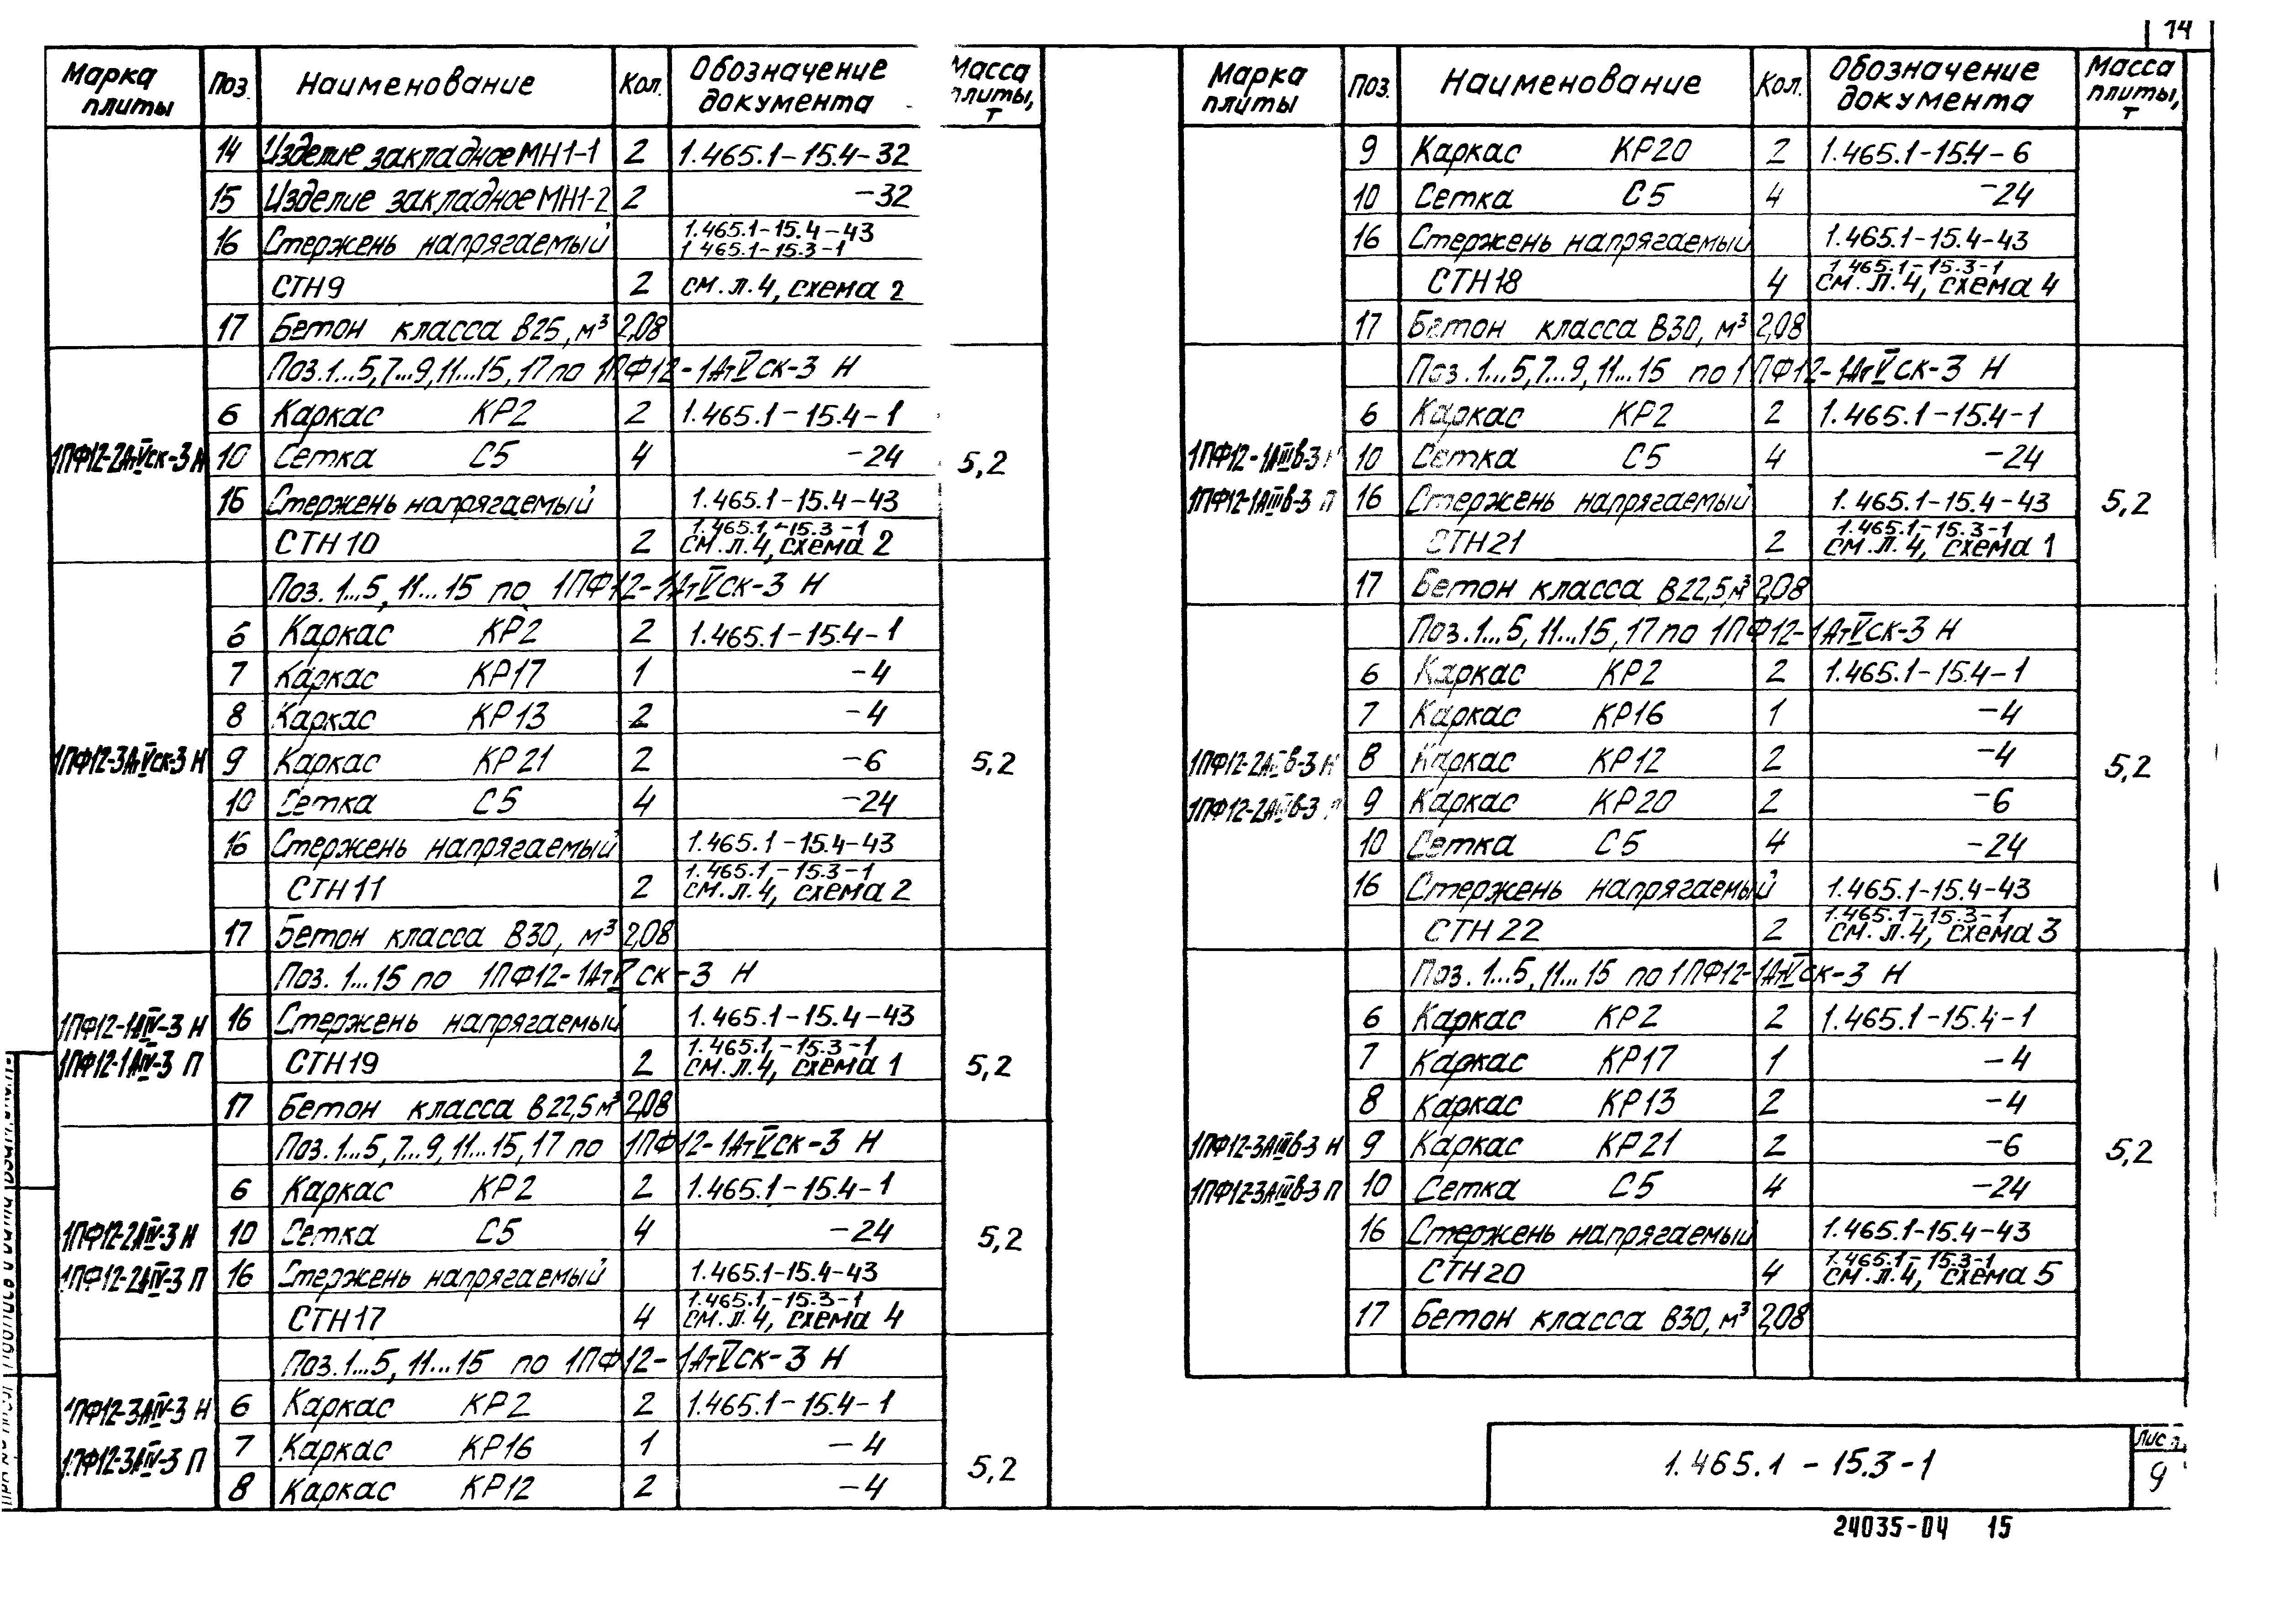 14
Марка плиты Поз. Наименование Кол. Обозначение документа Масса плиты, т
14 Изделие закладное МН1-1 2 1.465.1-15.4-32
15 Изделие закладное МН1-2 2 -32
16 Стержень напрягаемый 1.465.1-15.4-43
1.465.1-15.3-1
СТН9 2 см. л. 4, схема 2
17 Бетон класса В25, м³ 2,08
Поз. 1...5, 7...9, 11...15, 17 по 1ПФ12-1АтVск-3 Н
6 Каркас КР2 2 1.465.1-15.4-1
1ПФ12-2АтVск-3 Н 10 Сетка С5 4 -24 5,2
16 Стержень напрягаемый 1.465.1-15.4-43
1.465.1-15.3-1
СТН10 2 см. л. 4, схема 2
Поз. 1...5, 11...15 по 1ПФ12-1АтVск-3 Н
6 Каркас КР2 2 1.465.1-15.4-1
7 Каркас КР17 1 -4
8 Каркас КР13 2 -4
1ПФ12-3АтVск-3 Н 9 Каркас КР21 2 -6 5,2
10 Сетка С5 4 -24
16 Стержень напрягаемый 1.465.1-15.4-43
1.465.1-15.3-1
СТН11 2 см. л. 4, схема 2
17 Бетон класса В30, м³ 2,08
Поз. 1...15 по 1ПФ12-1АтVск-3 Н
1ПФ12-1АIV-3 Н 16 Стержень напрягаемый 1.465.1-15.4-43
1.465.1-15.3-1
1ПФ12-1АIV-3 П СТН19 2 см. л. 4, схема 1 5,2
17 Бетон класса В22,5 м³ 2,08
Поз. 1...5, 7...9, 11...15, 17 по 1ПФ12-1АтVск-3 Н
6 Каркас КР2 2 1.465.1-15.4-1
1ПФ12-2АIV-3 Н 10 Сетка С5 4 -24 5,2
1ПФ12-2АIV-3 П 16 Стержень напрягаемый 1.465.1-15.4-43
1.465.1-15.3-1
СТН17 4 см. л. 4, схема 4
Поз. 1...5, 11...15 по 1ПФ12-1АтVск-3 Н
1ПФ12-3АIV-3 Н 6 Каркас КР2 2 1.465.1-15.4-1
1ПФ12-3АIV-3 П 7 Каркас КР16 1 -4 5,2
8 Каркас КР12 2 -4
Марка плиты Поз. Наименование Кол. Обозначение документа Масса плиты, т
9 Каркас КР20 2 1.465.1-15.4-6
10 Сетка С5 4 -24
16 Стержень напрягаемый 1.465.1-15.4-43
1.465.1-15.3-1
СТН18 4 см. л. 4, схема 4
17 Бетон класса В30, м³ 2,08
Поз. 1...5, 7...9, 11...15 по 1ПФ12-1АтVск-3 Н
6 Каркас КР2 2 1.465.1-15.4-1
1ПФ12-1АIIIв-3 10 Сетка С5 4 -24
1ПФ12-1АIIIв-3 П 16 Стержень напрягаемый 1.465.1-15.4-43 5,2
1.465.1-15.3-1
СТН21 2 см. л. 4, схема 1
17 Бетон класса В22,5, м³ 2,08
Поз. 1...5, 11...15, 17 по 1ПФ12-1АтVск-3 Н
6 Каркас КР2 2 1.465.1-15.4-1
7 Каркас КР16 1 -4
1ПФ12-2АIIIв-3 Н 8 Каркас КР12 2 -4 5,2
1ПФ12-2АIIIв-3 П 9 Каркас КР20 2 -6
10 Сетка С5 4 -24
16 Стержень напрягаемый 1.465.1-15.4-43
1.465.1-15.3-1
СТН22 2 см. л. 4, схема 3
Поз. 1...5, 11...15 по 1ПФ12-1АтVск-3 Н
6 Каркас КР2 2 1.465.1-15.4-1
7 Каркас КР17 1 -4
8 Каркас КР13 2 -4
1ПФ12-3АIIIв-3 Н 9 Каркас КР21 2 -6 5,2
1ПФ12-3АIIIв-3 П 10 Сетка С5 4 -24
16 Стержень напрягаемый 1.465.1-15.4-43
1.465.1-15.3-1
СТН20 4 см. л. 4, схема 5
17 Бетон класса В30, м³ 2,08
1.465.1-15.3-1
Лист
9
24035-04 15